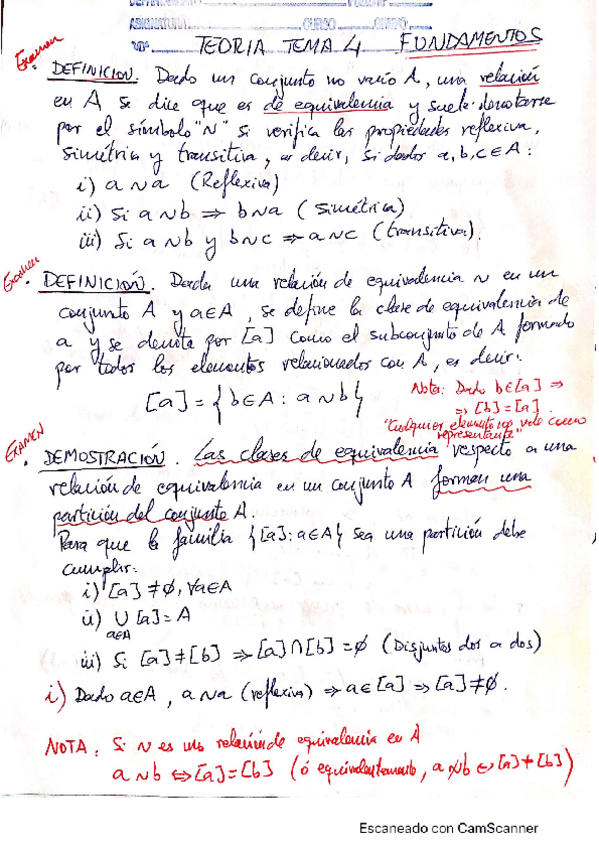 ASIGNATURA CURSO GRUPO
Nº
TEORIA TEMA 4 FUNDAMENTOS
Examen
· DEFINICION. Dado un conjunto no vacío A, una relación
en A se dice que es de equivalencia y suele denotarse
por el símbolo "∼" si verifica las propiedades reflexiva,
simétrica y transitiva, es decir, si dados a,b,c∈A:
i) a∼a (Reflexiva)
ii) Si a∼b ⇒ b∼a (Simétrica)
iii) Si a∼b y b∼c ⇒ a∼c (transitiva).
Examen
· DEFINICIÓN. Dada una relación de equivalencia ∼ en un
conjunto A y a∈A, se define la clase de equivalencia de
a y se denota por [a] como el subconjunto de A formado
por todos los elementos relacionados con A, es decir:
[a] = { b∈A : a∼b }
Nota: Dado b∈[a] ⇒
⇒ [b]=[a].
"Cualquier elemento nos vale como
representante"
EXAMEN
· DEMOSTRACIÓN. Las clases de equivalencia respecto a una
relación de equivalencia en un conjunto A forman una
partición del conjunto A.
Para que la familia {[a]: a∈A} sea una partición debe
cumplir:
i) [a] ≠ ∅, ∀a∈A
ii) ∪ [a] = A
a∈A
iii) Si [a]≠[b] ⇒ [a]∩[b] = ∅ (Disjuntos dos a dos)
i) Dado a∈A, a∼a (reflexiva) ⇒ a∈[a] ⇒ [a]≠∅.
NOTA: Si ∼ es una relación de equivalencia en A
a∼b ⇔ [a]=[b] (ó equivalentemente, a≁b ⇔ [a]≠[b])
Escaneado con CamScanner